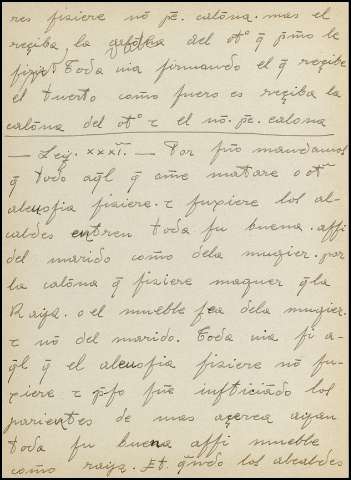 res fiziere nõ pē. calõna. mas el
reçiba, la calõna del otº q̄ p̃mo le
fizo. Toda uia firmando el q̄ reçibe
el tuerto como fuero es reçiba la
calõna del otº τ el nõ. pē. calona
— Ley. xxxi. — Por fuo mandamos
q̄ todo aq̄l q̄ ome matare o otᵃ
aleuosia fiziere. τ fuxiere los al-
caldes entren toda su buena. assi
del marido como dela mugier. por
la calõna q̄ fiziere maguer q̄la
Rayz. o el mueble sea dela mugier.
τ nõ del marido. Toda uia si a-
q̄l q̄ el aleuosia fiziere nõ fu-
xiere τ p̄so fue iusticiãdo los
parientes de mas açerca ayan
toda su buena assi mueble
como rayz. Et. q̄ndo los alcaldes